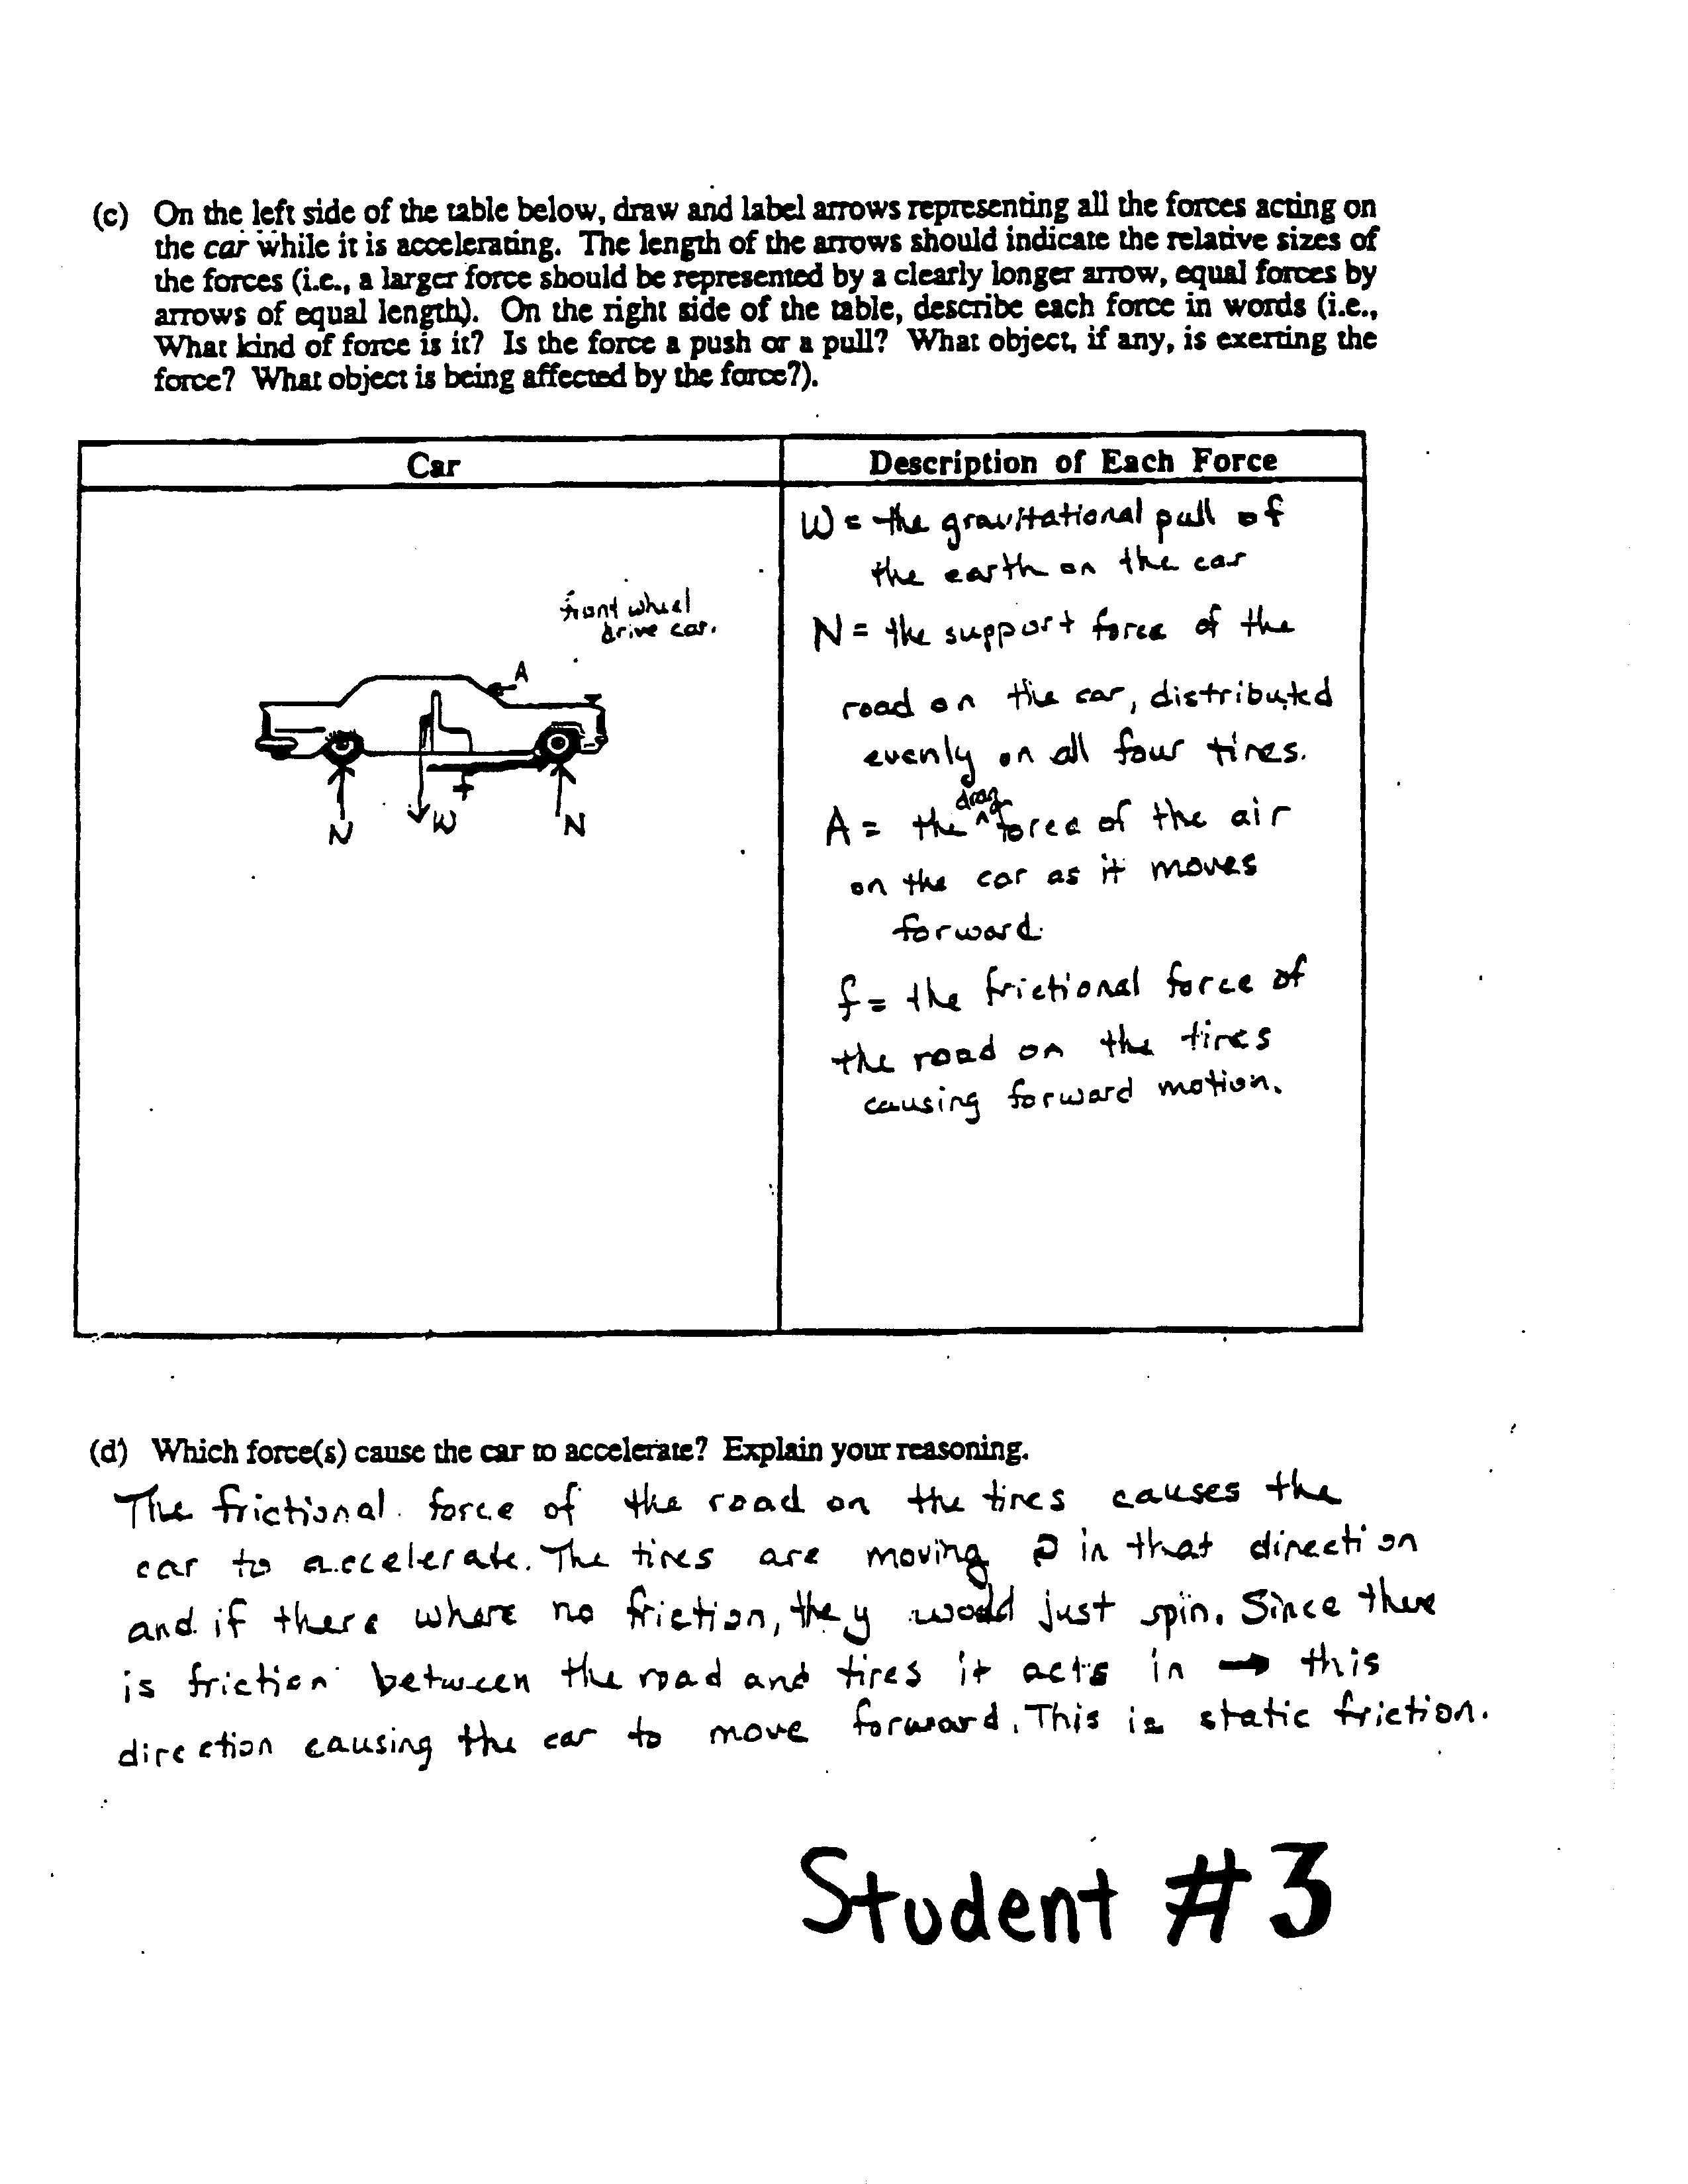 (c) On the left side of the table below, draw and label arrows representing all the forces acting on
the car while it is accelerating. The length of the arrows should indicate the relative sizes of
the forces (i.e., a larger force should be represented by a clearly longer arrow, equal forces by
arrows of equal length). On the right side of the table, describe each force in words (i.e.,
What kind of force is it? Is the force a push or a pull? What object, if any, is exerting the
force? What object is being affected by the force?).
Car
front wheel
drive car.
A
f
N
W
N
Description of Each Force
W = the gravitational pull of
the earth on the car
N = the support force of the
road on the car, distributed
evenly on all four tires.
A = the drag force of the air
on the car as it moves
forward.
f = the frictional force of
the road on the tires
causing forward motion.
(d) Which force(s) cause the car to accelerate? Explain your reasoning.
The frictional force of the road on the tires causes the
car to accelerate. The tires are moving ↻ in that direction
and if there where no friction, they would just spin. Since there
is friction between the road and tires it acts in → this
direction causing the car to move forward. This is static friction.
Student #3